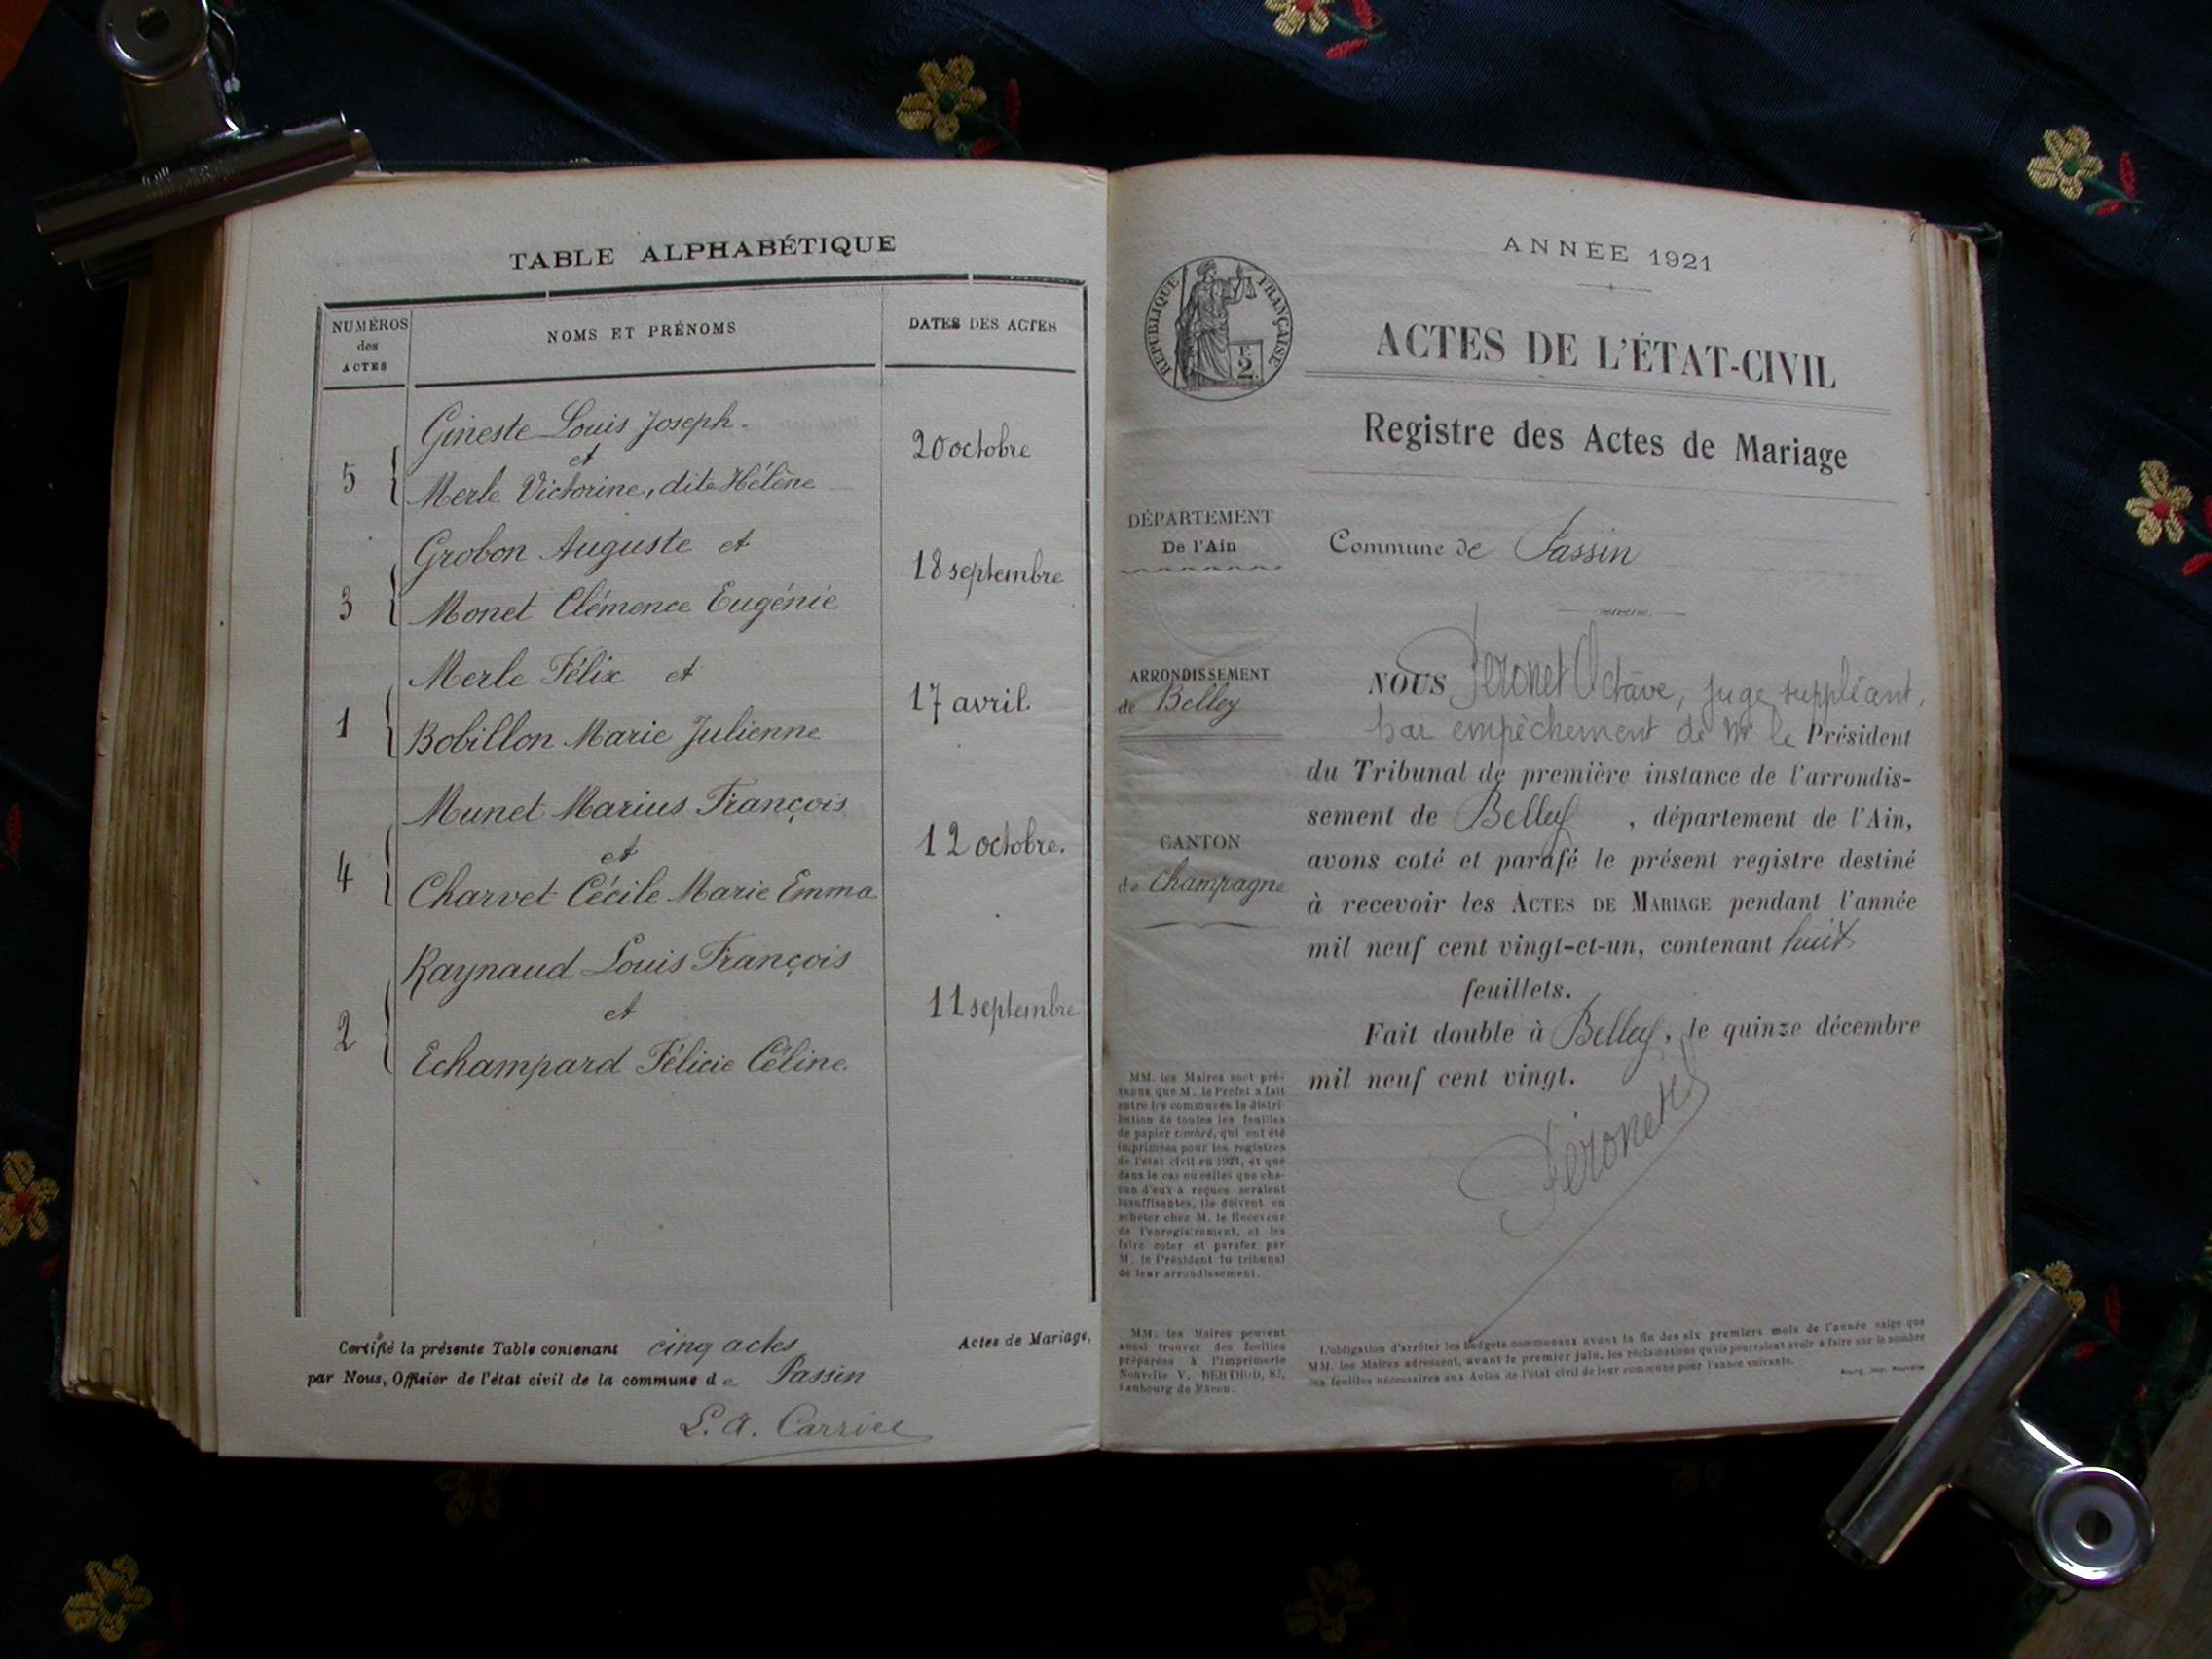 TABLE ALPHABÉTIQUE
NUMÉROS
des
ACTES
NOMS ET PRÉNOMS
DATES DES ACTES
Gineste Louis Joseph.
et
5
Merle Victorine, dite Hélène
20 octobre
Grobon Auguste et
3
Monet Clémence Eugénie
18 septembre
Merle Félix et
1
Bobillon Marie Julienne
17 avril.
Munet Marius François
et
4
Charvet Cécile Marie Emma
12 octobre.
Raynaud Louis François
et
2
Echampard Félicie Céline.
11 septembre.
Certifié la présente Table contenant cinq actes Actes de Mariage,
par Nous, Officier de l'état civil de la commune de Passin
L. A.
ANNÉE 1921
RÉPUBLIQUE FRANÇAISE
2
ACTES DE L'ÉTAT-CIVIL
Registre des Actes de Mariage
DÉPARTEMENT
De l'Ain
Commune de Passin
ARRONDISSEMENT
de Belley
CANTON
de Champagne
NOUS Octave, juge suppléant,
par empêchement de Mr le Président
du Tribunal de première instance de l'arrondis-
sement de Belley, département de l'Ain,
avons coté et parafé le présent registre destiné
à recevoir les ACTES DE MARIAGE pendant l'année
mil neuf cent vingt-et-un, contenant huit
feuillets.
Fait double à Belley, le quinze décembre
mil neuf cent vingt.
MM. les Maires sont pré-
venus que M. le Préfet a fait
entre les communes la distri-
bution de toutes les feuilles
de papier timbré, qui ont été
imprimées pour les registres
de l'état civil en 1921, et que
dans le cas où celles que cha-
cun d'eux a reçues seraient
insuffisantes, ils doivent en
acheter chez M. le Receveur
de l'enregistrement, et les
faire coter et parafer par
M. le Président du tribunal
de leur arrondissement.
MM. les Maires peuvent
aussi trouver des feuilles
préparées à l'Imprimerie
Nouvelle V. BERTHOD, 82,
Faubourg de Mâcon.
L'obligation d'arrêter les budgets communaux avant la fin des six premiers mois de l'année exige que
MM. les Maires adressent, avant le premier juin, les réclamations qu'ils pourraient avoir à faire sur le nombre
des feuilles nécessaires aux Actes de l'état civil de leur commune pour l'année suivante.